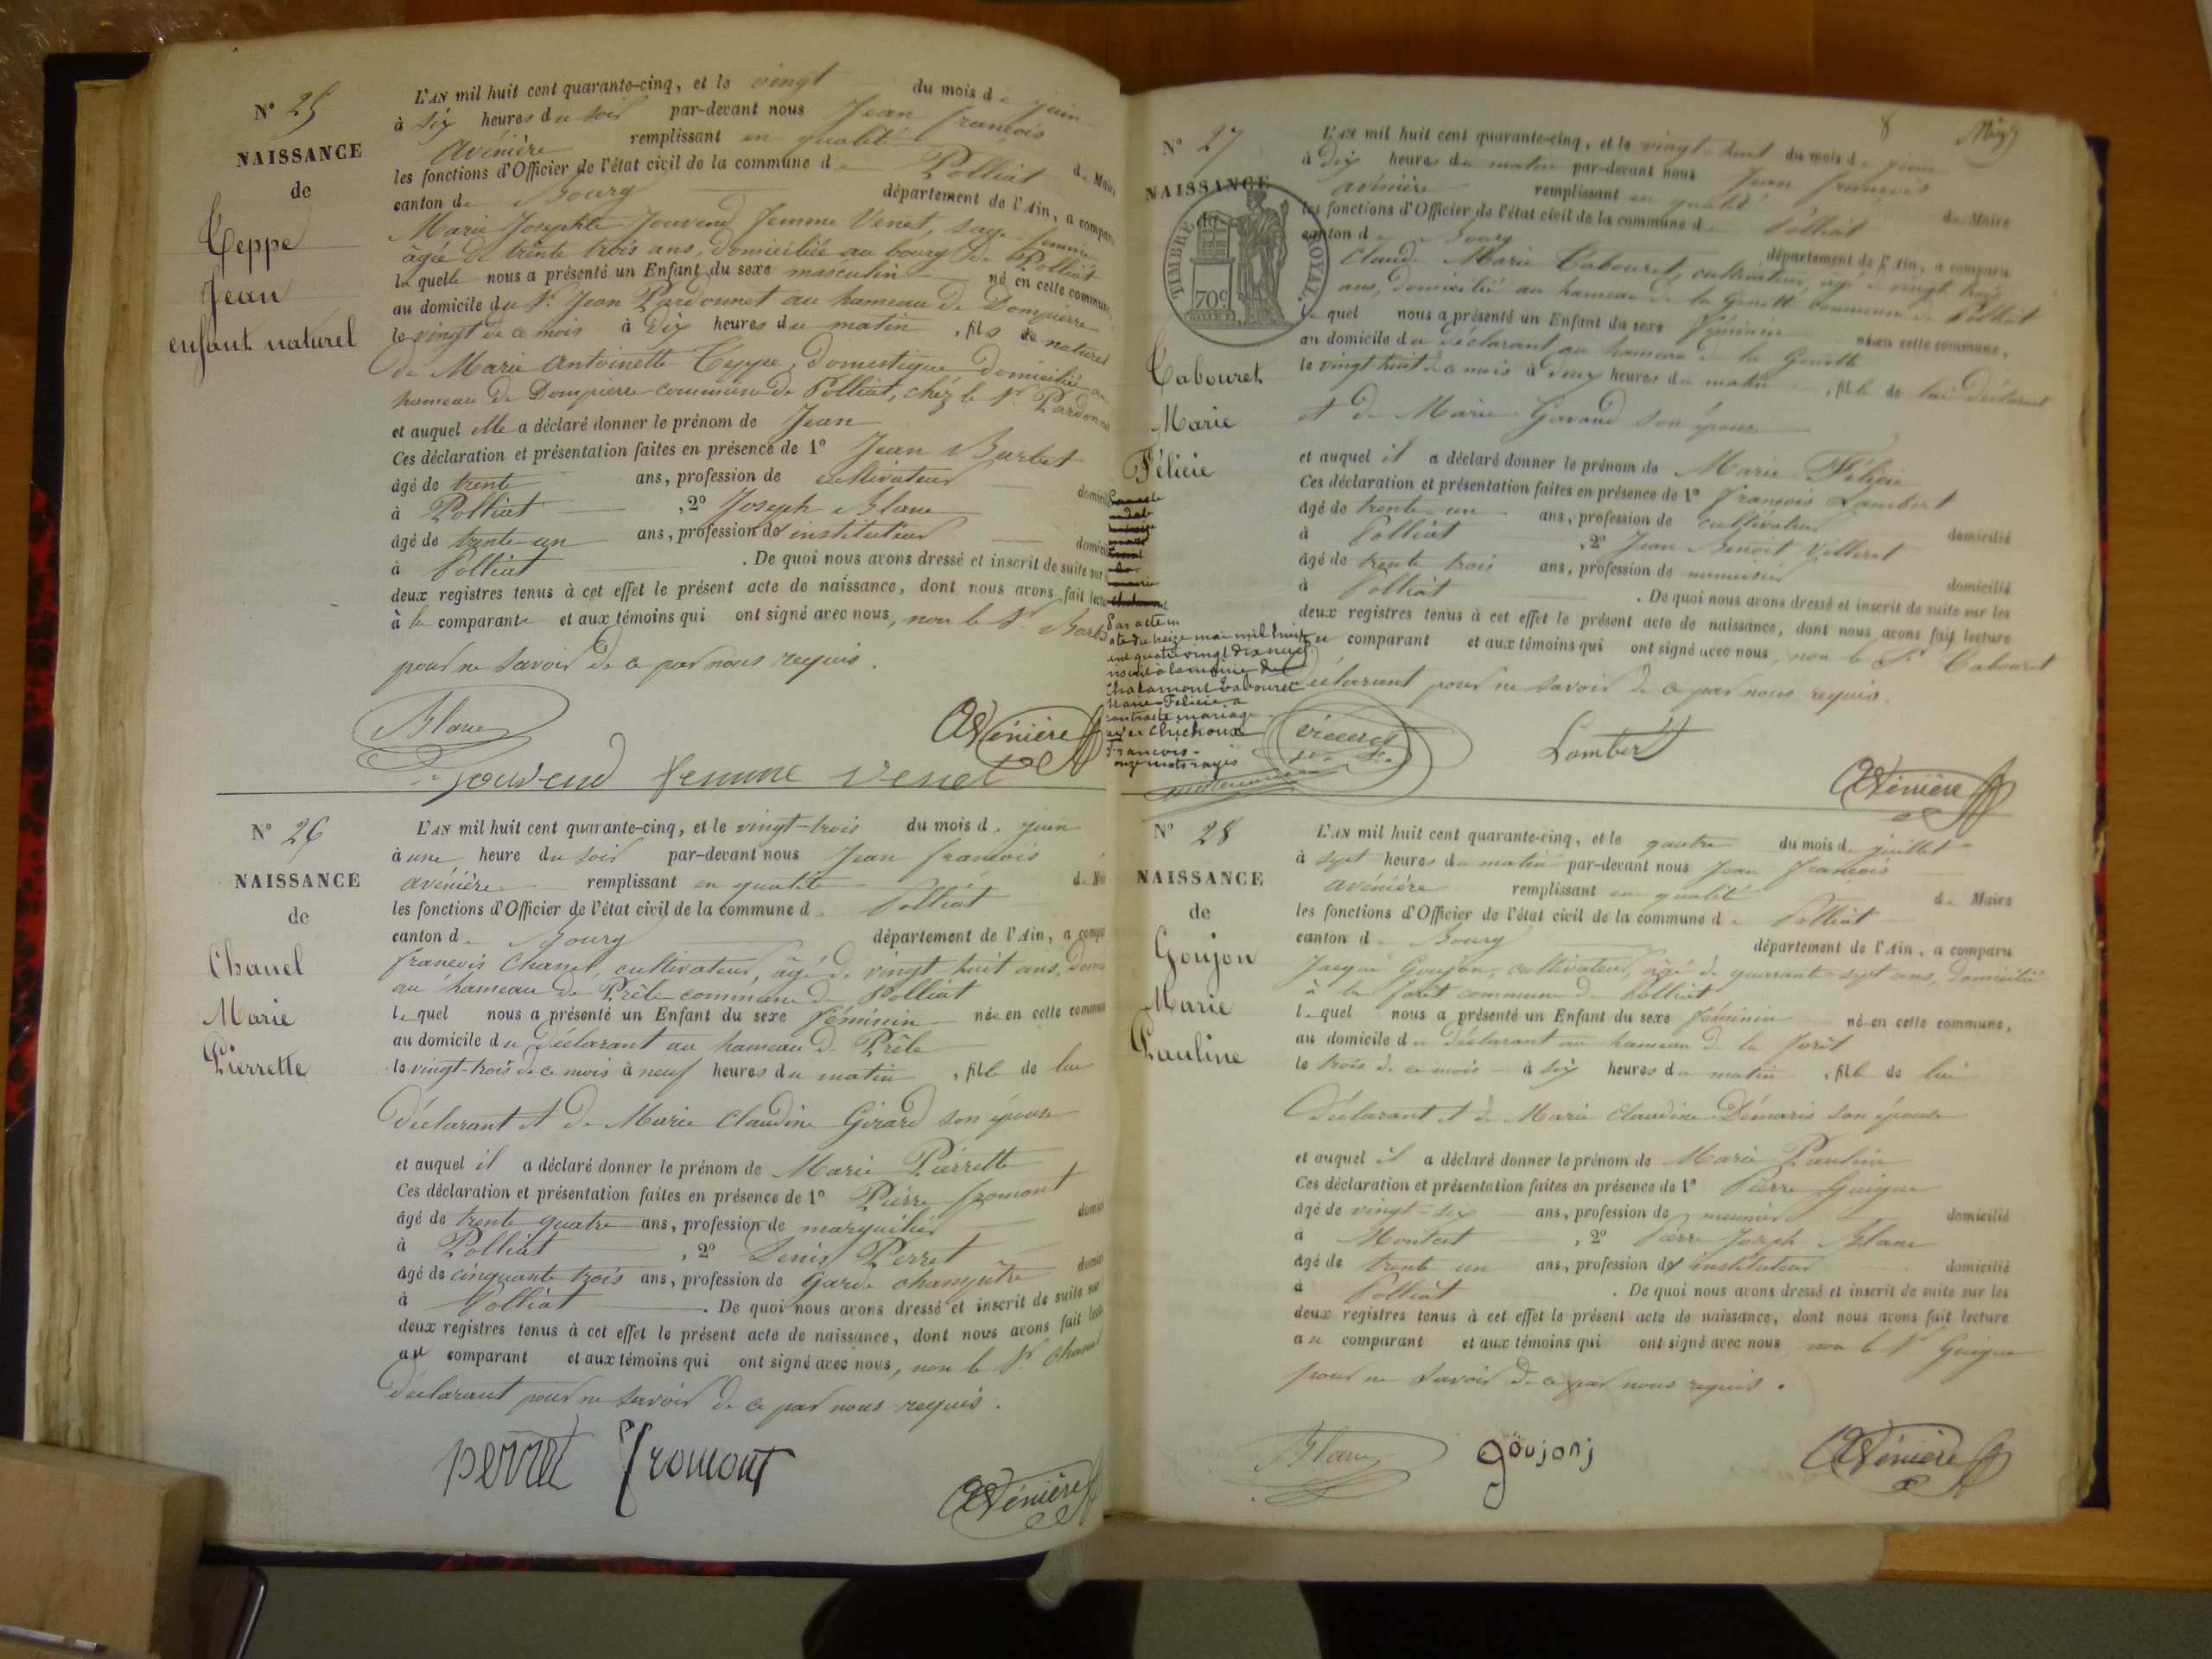 N° 25
NAISSANCE
de
Teppe
Jean
enfant naturel
L'AN mil huit cent quarante-cinq, et le vingt du mois de juin
à six heures du soir par-devant nous Jean françois
Avénière remplissant en qualité de Maire
les fonctions d'Officier de l'état civil de la commune de Polliat
canton de Bourg département de l'Ain, a comparu
Marie Josephte Jouvend femme Venet, sage-femme
âgée de trente trois ans, domiciliée au bourg de Polliat
laquelle nous a présenté un Enfant du sexe masculin né en cette commune,
au domicile du Sr. Jean Pardonnet au hameau de Dompierre
le vingt de ce mois à dix heures du matin, fils de naturel
de Marie Antoinette Teppe, domestique domiciliée au
hameau de Dompierre commune de Polliat, chez le Sr. Pardonnet
et auquel elle a déclaré donner le prénom de Jean
Ces déclaration et présentation faites en présence de 1° Jean Barbet
âgé de trente ans, profession de cultivateur domicilié
à Polliat, 2° Joseph Blanc
âgé de trente-un ans, profession de instituteur domicilié
à Polliat. De quoi nous avons dressé et inscrit de suite sur
deux registres tenus à cet effet le présent acte de naissance, dont nous avons fait lecture
à la comparante et aux témoins qui ont signé avec nous, non le Sr. Barbet
pour ne savoir de ce par nous requis.
Blanc
Avénière
Jouvend femme Venet
N° 26
NAISSANCE
de
Chanel
Marie
Pierrette
L'AN mil huit cent quarante-cinq, et le vingt-trois du mois de juin
à une heure du soir par-devant nous Jean françois
Avénière remplissant en qualité de
les fonctions d'Officier de l'état civil de la commune de Polliat
canton de Bourg département de l'Ain, a comparu
françois Chanel, cultivateur, âgé de vingt-huit ans,
au hameau de Prêle commune de Polliat
lequel nous a présenté un Enfant du sexe féminin née en cette commune
au domicile du déclarant au hameau de Prêle
le vingt-trois de ce mois à neuf heures du matin, fille de lui
déclarant et de Marie Claudine Girard son épouse
et auquel il a déclaré donner le prénom de Marie Pierrette
Ces déclaration et présentation faites en présence de 1° Pierre fromont
âgé de trente quatre ans, profession de marguillier
à Polliat, 2° Denis Perret
âgé de cinquante trois ans, profession de Garde champêtre
à Polliat. De quoi nous avons dressé et inscrit de suite sur
deux registres tenus à cet effet le présent acte de naissance, dont nous avons fait lecture
au comparant et aux témoins qui ont signé avec nous, non le Sr. Chanel
déclarant pour ne savoir de ce par nous requis.
perret fromont
Avénière
8
N° 27
NAISSANCE
de
TIMBRE ROYAL.
70c
Cabouret
Marie
Félicie
L'AN mil huit cent quarante-cinq, et le vingt-huit du mois de juin
à dix heures du matin par-devant nous Jean françois
Avénière remplissant en qualité de Maire
les fonctions d'Officier de l'état civil de la commune de Polliat
canton de Bourg département de l'Ain, a comparu
Claude Marie Cabouret, cultivateur, âgé de vingt trois
ans, domicilié au hameau de la Genette commune de Polliat
lequel nous a présenté un Enfant du sexe féminin né en cette commune,
au domicile du déclarant au hameau de la Genette
le vingt-huit de ce mois à deux heures du matin, fille de lui déclarant
et de Marie Gavand son épouse
et auquel il a déclaré donner le prénom de Marie Félicie
Ces déclaration et présentation faites en présence de 1° françois Lambert
âgé de trente-un ans, profession de cultivateur domicilié
à Polliat, 2° Jean Benoit Villeret
âgé de trente trois ans, profession de menuisier domicilié
à Polliat. De quoi nous avons dressé et inscrit de suite sur les
deux registres tenus à cet effet le présent acte de naissance, dont nous avons fait lecture
au comparant et aux témoins qui ont signé avec nous, non le Sr. Cabouret
déclarant pour ne savoir de ce par nous requis.
Par acte en
date du treize mai mil huit
cent quatre vingt dix neuf
inscrit à la mairie de
Chalamont Cabouret
Marie-Félicie a
contracté mariage
avec Chichoux
François.
onze mots rayés
Lambert
Avénière
N° 28
NAISSANCE
de
Goujon
Marie
Pauline
L'AN mil huit cent quarante-cinq, et le quatre du mois de juillet
à sept heures du matin par-devant nous Jean françois
Avénière remplissant en qualité de Maire
les fonctions d'Officier de l'état civil de la commune de Polliat
canton de Bourg département de l'Ain, a comparu
Jacque Goujon, cultivateur, âgé de quarante-sept ans, domicilié
à la forêt commune de Polliat
lequel nous a présenté un Enfant du sexe féminin né en cette commune,
au domicile du déclarant au hameau de la forêt
le trois de ce mois à six heures du matin, fille de lui
déclarant et de Marie Claudine Démaris son épouse
et auquel il a déclaré donner le prénom de Marie Pauline
Ces déclaration et présentation faites en présence de 1° Pierre Guigue
âgé de vingt-six ans, profession de meunier domicilié
à Montcet, 2° Pierre Joseph Blanc
âgé de trente un ans, profession d'instituteur domicilié
à Polliat. De quoi nous avons dressé et inscrit de suite sur les
deux registres tenus à cet effet le présent acte de naissance, dont nous avons fait lecture
au comparant et aux témoins qui ont signé avec nous, non le Sr Guigue
pour ne savoir de ce par nous requis.
Blanc goujonj
Avénière